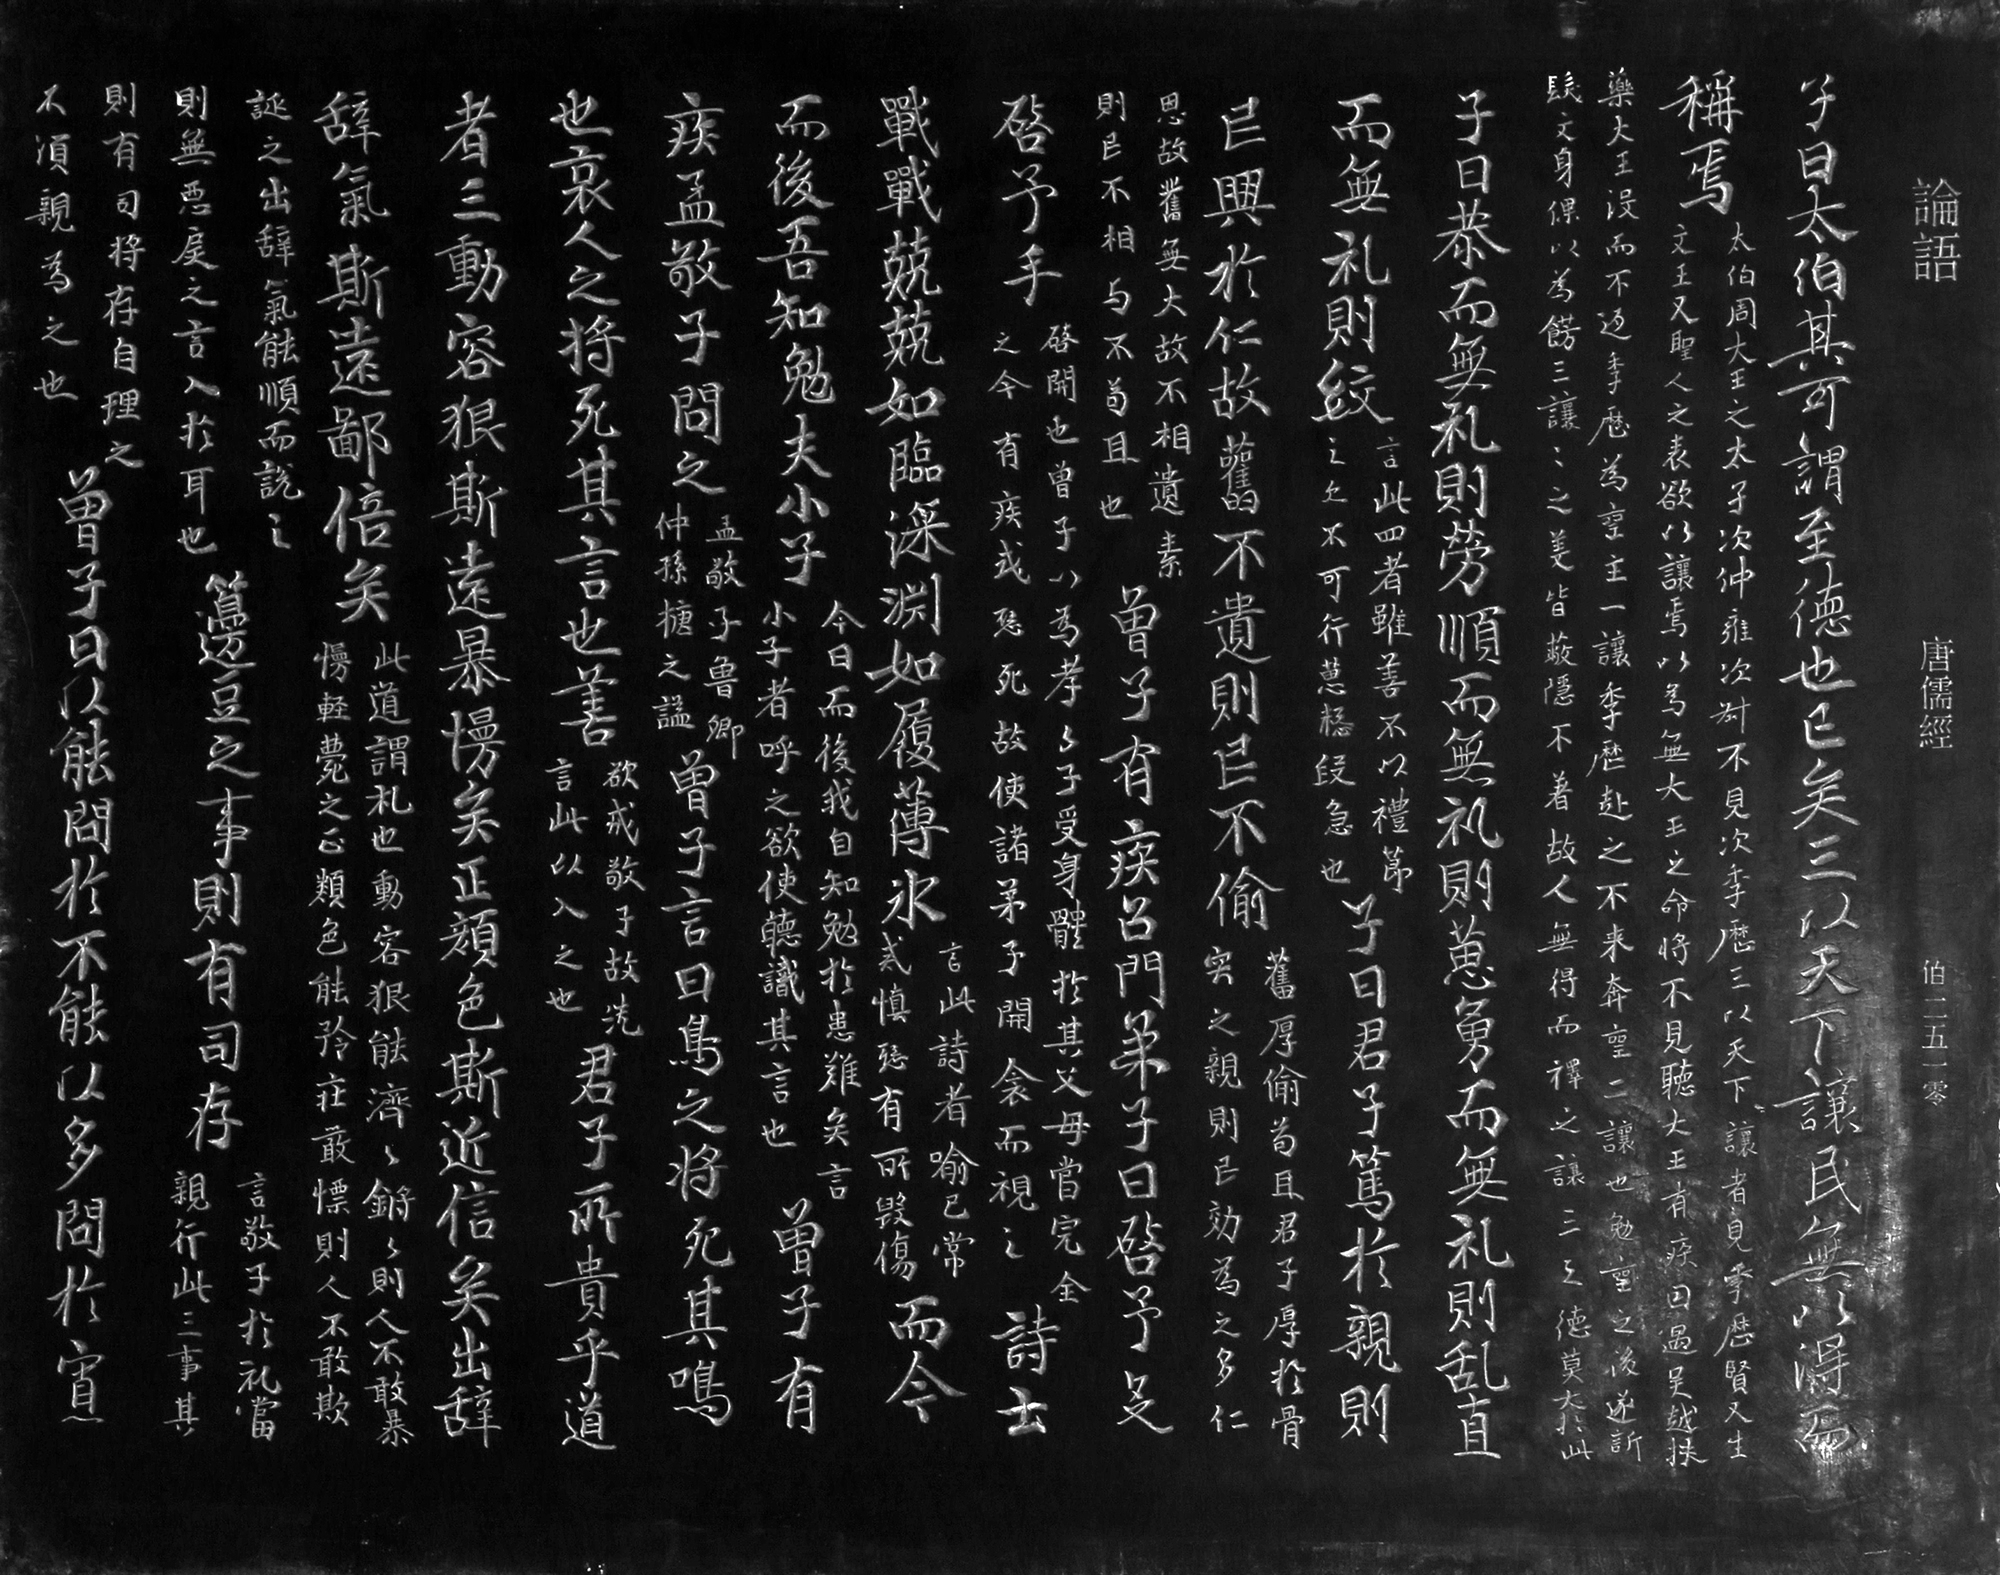 論語　唐儒經　伯二五一零
子曰太伯其可謂至德也已矣三以天下讓民無以得而
稱焉
太伯周大王之太子次仲雍次　不見次季歷三以天下讓者見季歷賢又生
文王又聖人之表欲以讓焉以為無大王之命將不見聽大王有疾因過吳越採
藥大王沒而不返季歷為喪主一讓季歷赴之不來奔喪二讓也勉喪之後遂斷
髮文身倮以為飾三讓三讓之美皆蔽隱不著故人無得而禪之讓三之德莫大於此
子曰恭而無礼則勞順而無礼則葸勇而無礼則乱直
而無礼則絞
言此四者雖善不以禮節
之之不可行葸愨　急也
子曰君子篤於親則
民興於仁故舊不遺則民不偷
舊厚偷苟且君子厚於骨
宍之親則民効為之多仁
恩故舊無大故不相遺素
則民不相与不苟且也
曾子有疾召門弟子曰啓予足
啓予手
啓開也曾子以為孝々子受身體於其父母當完全
之今有疾或恐死故使諸弟子開衾而視之
詩云
戰戰兢兢如臨深淵如履薄氷
言此詩者喻己常
式慎恐有所毀傷
而今
而後吾知勉夫小子
今日而後我自知勉於患難矣言
小子者呼之欲使聽識其言也
曾子有
疾孟敬子問之
孟敬子魯卿
仲孫㨗之謚
曾子言曰鳥之將死其鳴
也哀人之將死其言也善
欲戒敬子故先
言此以入之也
君子所貴乎道
者三動容狠斯遠暴慢矣正顏色斯近信矣出辞
辞氣斯遠鄙倍矣
此道謂礼也動容狠能濟々鏘々則人不敢暴
慢輕蔑之正類色能矜莊敢慓則人不敢欺
誕之出辞氣能順而說之
則無惡戾之言入於耳也
籩豆之事則有司存
言敬子於礼當
親行此三事其
則有司將存自理之
不須親為之也
曾子曰以能問於不能以多問於寡